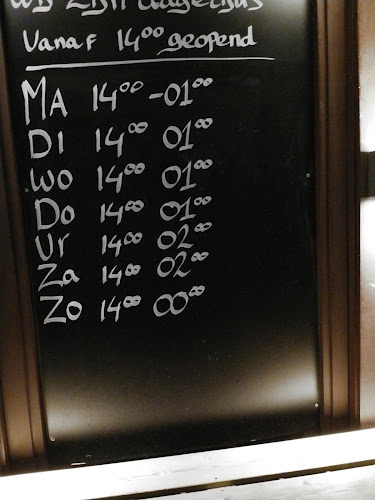 wij zijn dagelijks
Vanaf 14⁰⁰ geopend
MA 14⁰⁰ - 01⁰⁰
DI 14⁰⁰ 01⁰⁰
WO 14⁰⁰ 01⁰⁰
Do 14⁰⁰ 01⁰⁰
Vr 14⁰⁰ 02⁰⁰
Za 14⁰⁰ 02⁰⁰
Zo 14⁰⁰ 00⁰⁰